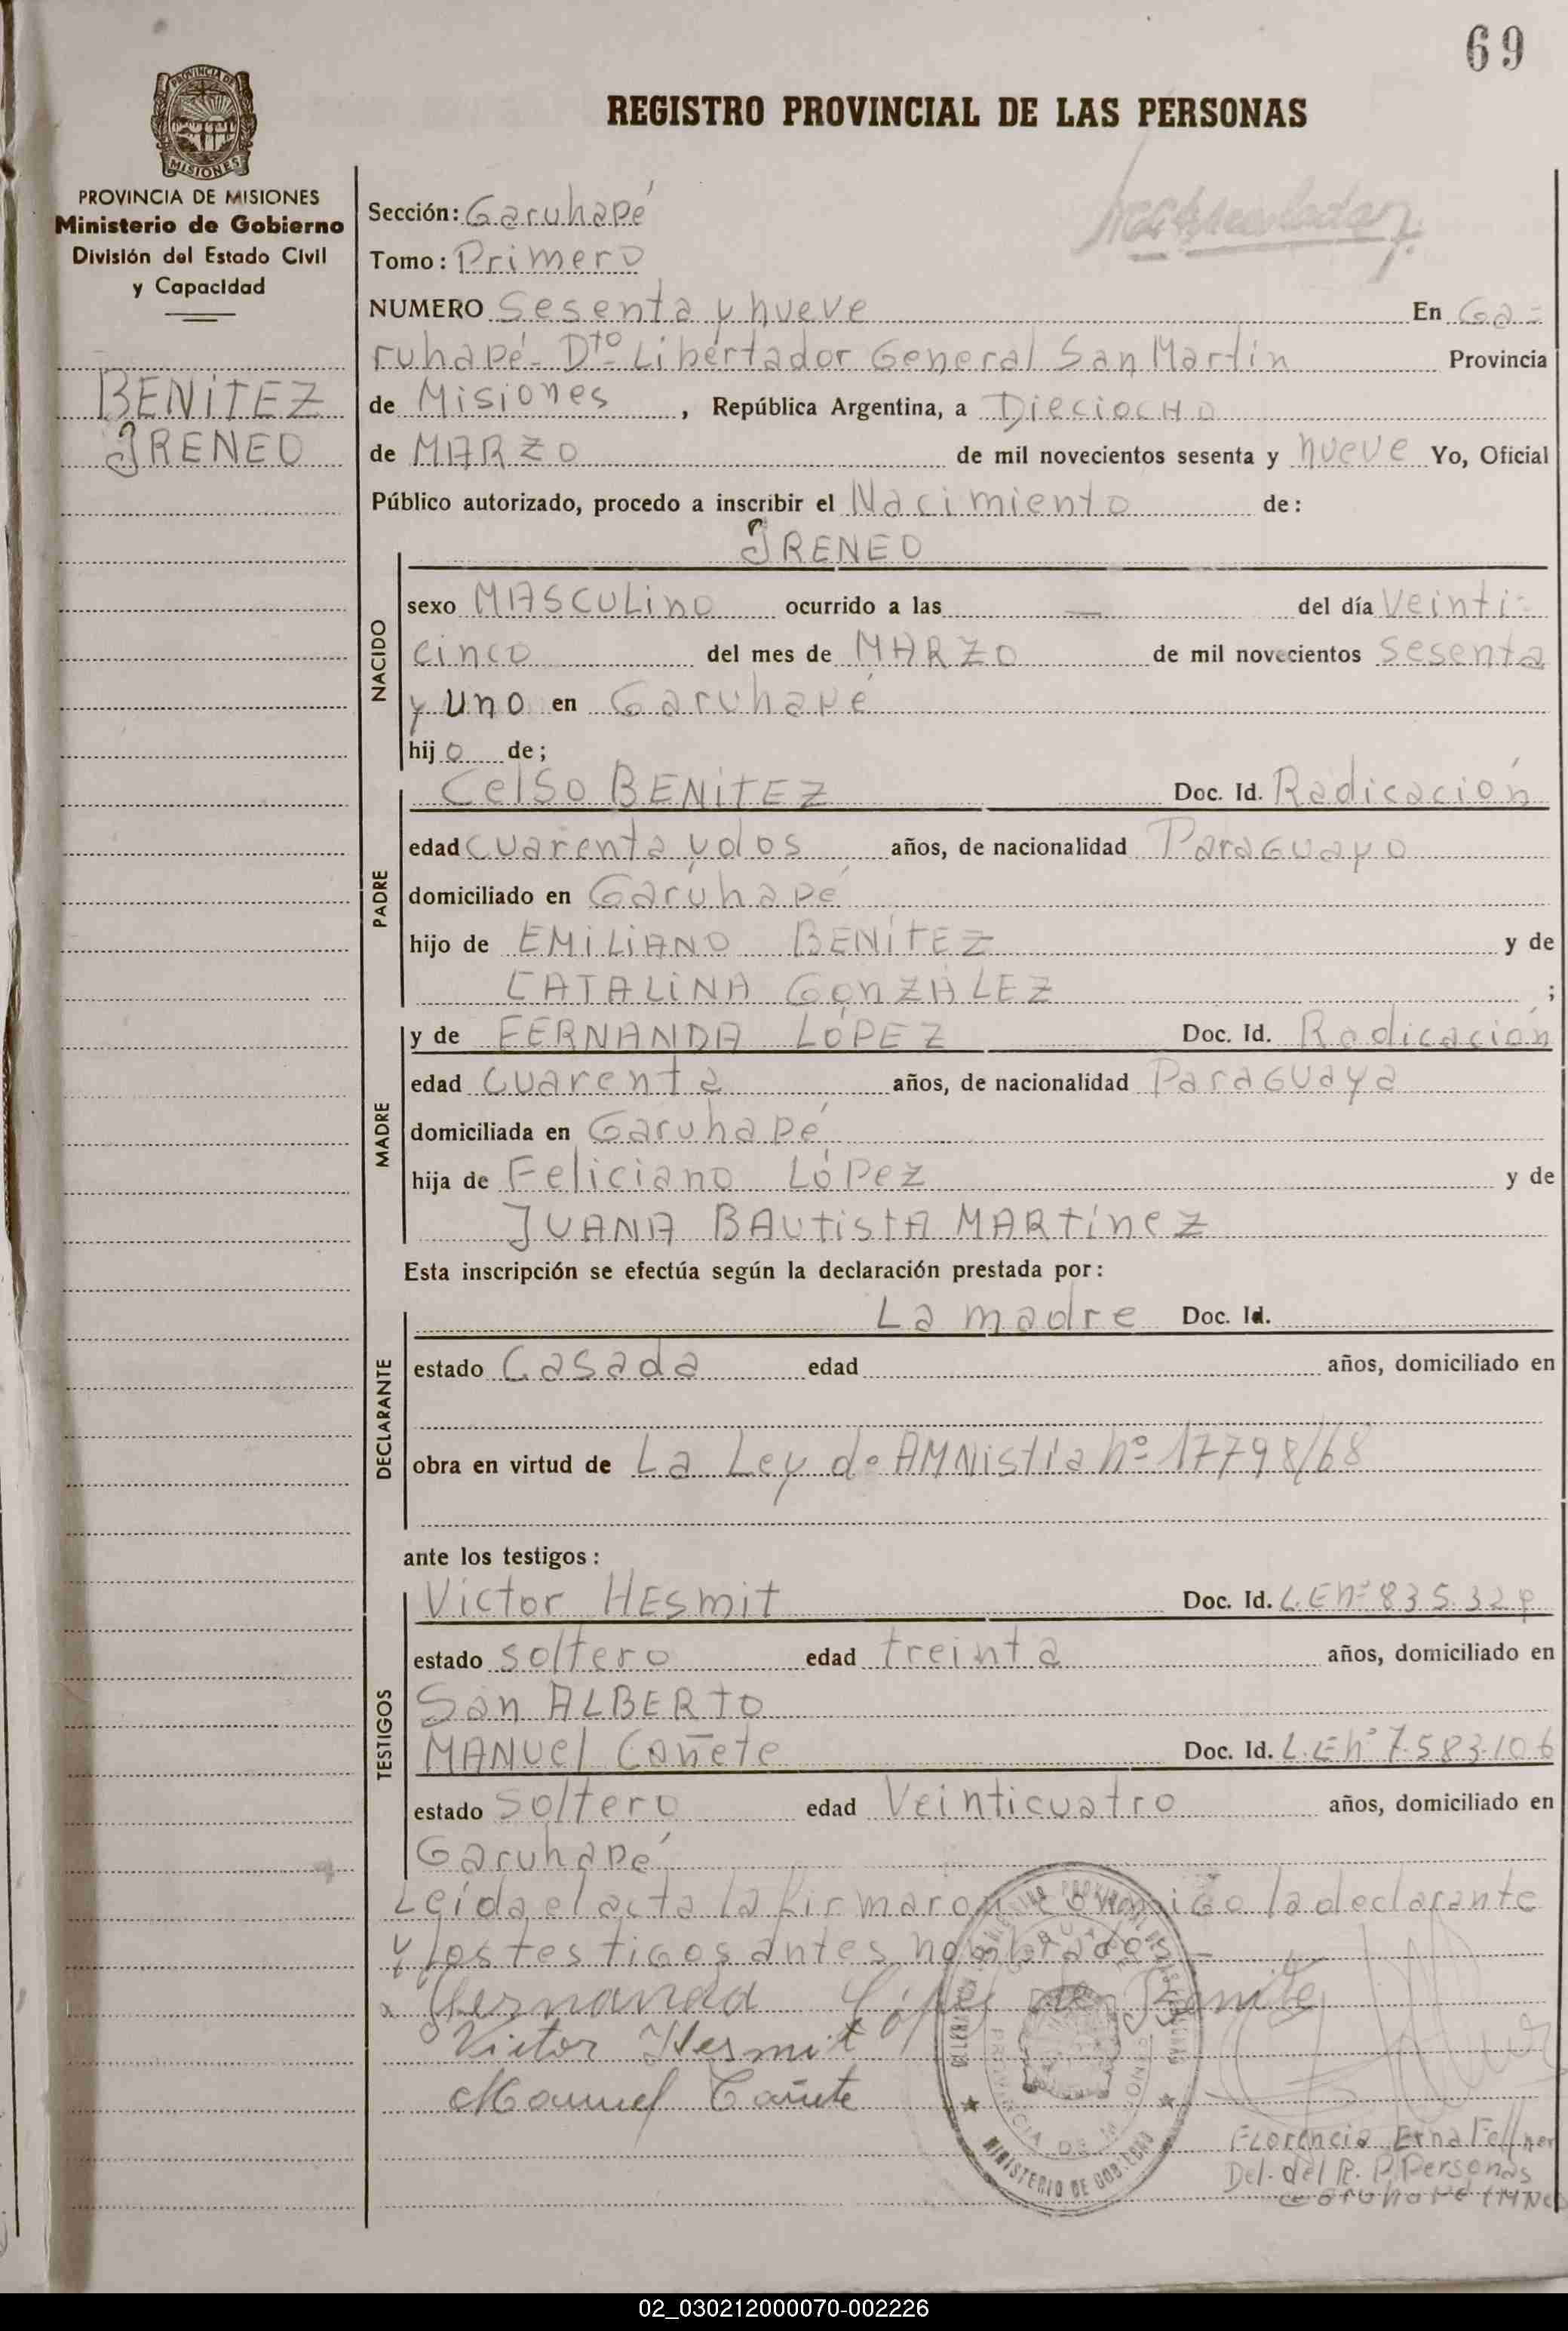 69
REGISTRO PROVINCIAL DE LAS PERSONAS
PROVINCIA DE
MISIONES
PROVINCIA DE MISIONES
Ministerio de Gobierno
División del Estado Civil
y Capacidad
BENÍTEZ
IRENEO
Sección: Garuhapé
Tomo: Primero
NUMERO Sesenta y nueve En Ga-
ruhapé- Dto- Libertador General San Martín Provincia
de Misiones, República Argentina, a DieciocHo
de MARZO de mil novecientos sesenta y nueve Yo, Oficial
Público autorizado, procedo a inscribir el Nacimiento de:
IRENEO
NACIDO
sexo MASCULino ocurrido a las — del día Veinti-
cinco del mes de MARZO de mil novecientos Sesenta
y uno en Garuhapé
hijo de;
PADRE
Celso BENÍTEZ Doc. Id. Radicación
edad cuarenta y dos años, de nacionalidad Paraguayo
domiciliado en Garuhapé
hijo de EMiLiANO BENÍTEZ y de
CATALINA GonZÁLEZ ;
MADRE
y de FERNANDA LÓPEZ Doc. Id. Radicación
edad Cuarenta años, de nacionalidad Paraguaya
domiciliada en Garuhapé
hija de Feliciano LóPez y de
JUANA BAutistA MARtínez
Esta inscripción se efectúa según la declaración prestada por:
DECLARANTE
La madre Doc. Id.
estado Casada edad años, domiciliado en
obra en virtud de La Ley de AMNistía nº 17798/68
ante los testigos:
TESTIGOS
Victor HEsmit Doc. Id. L.E nº 835.329
estado soltero edad treinta años, domiciliado en
San ALBERTO
MANUel Cañete Doc. Id. L.E nº 7.583.106
estado Soltero edad Veinticuatro años, domiciliado en
Garuhapé
Leída el acta la firmaron conmigo la declarante
y los testigos antes nombrados-
Fernanda López de Benite
Victor Hesmit
Manuel Cañete
MINISTERIO DE GOBIERNO
Florencia Erna Fellner
Del. del R. P. Personas
Garuhapé (MNes
02_030212000070-002226